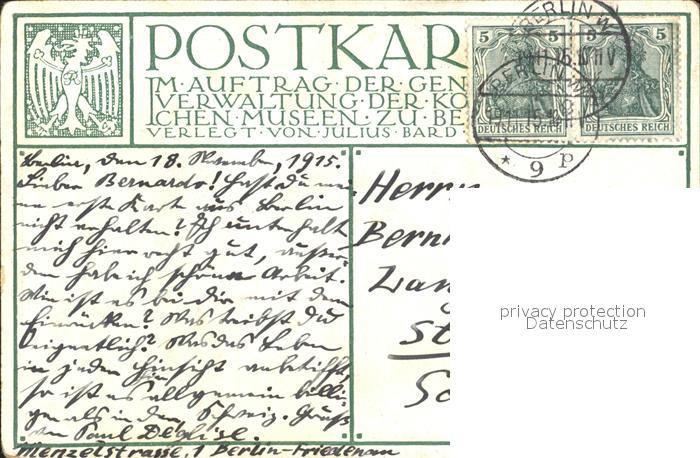 POSTKAR
IM · AUFTRAG · DER · GEN
VERWALTUNG · DER · KÖ
CHEN · MUSEEN · ZU · BE
VERLEGT · VON · JULIUS · BARD
5 5
DEUTSCHES REICH
5 5
DEUTSCHES REICH
BERLIN W
BERLIN W
* 9 p
Berlin, den 18. November, 1915.
Lieber Bernardo! Hast du mei-
ne erste Karte aus Berlin
nicht erhalten? Ich unterhalt
mich hier recht gut, außer-
dem habe ich schöne Arbeit.
Wie ist es bei dir mit dem
Einrücken? Was treibst du
eigentlich? Was das Leben
in jeder Hinsicht anbetrifft,
so ist es allgemein billi-
ger als in der Schweiz. Gruß
von Paul Déglise.
Menzelstrasse, 1 Berlin-Friedenau
Herrn
Bern
privacy protection
Datenschutz
St
So